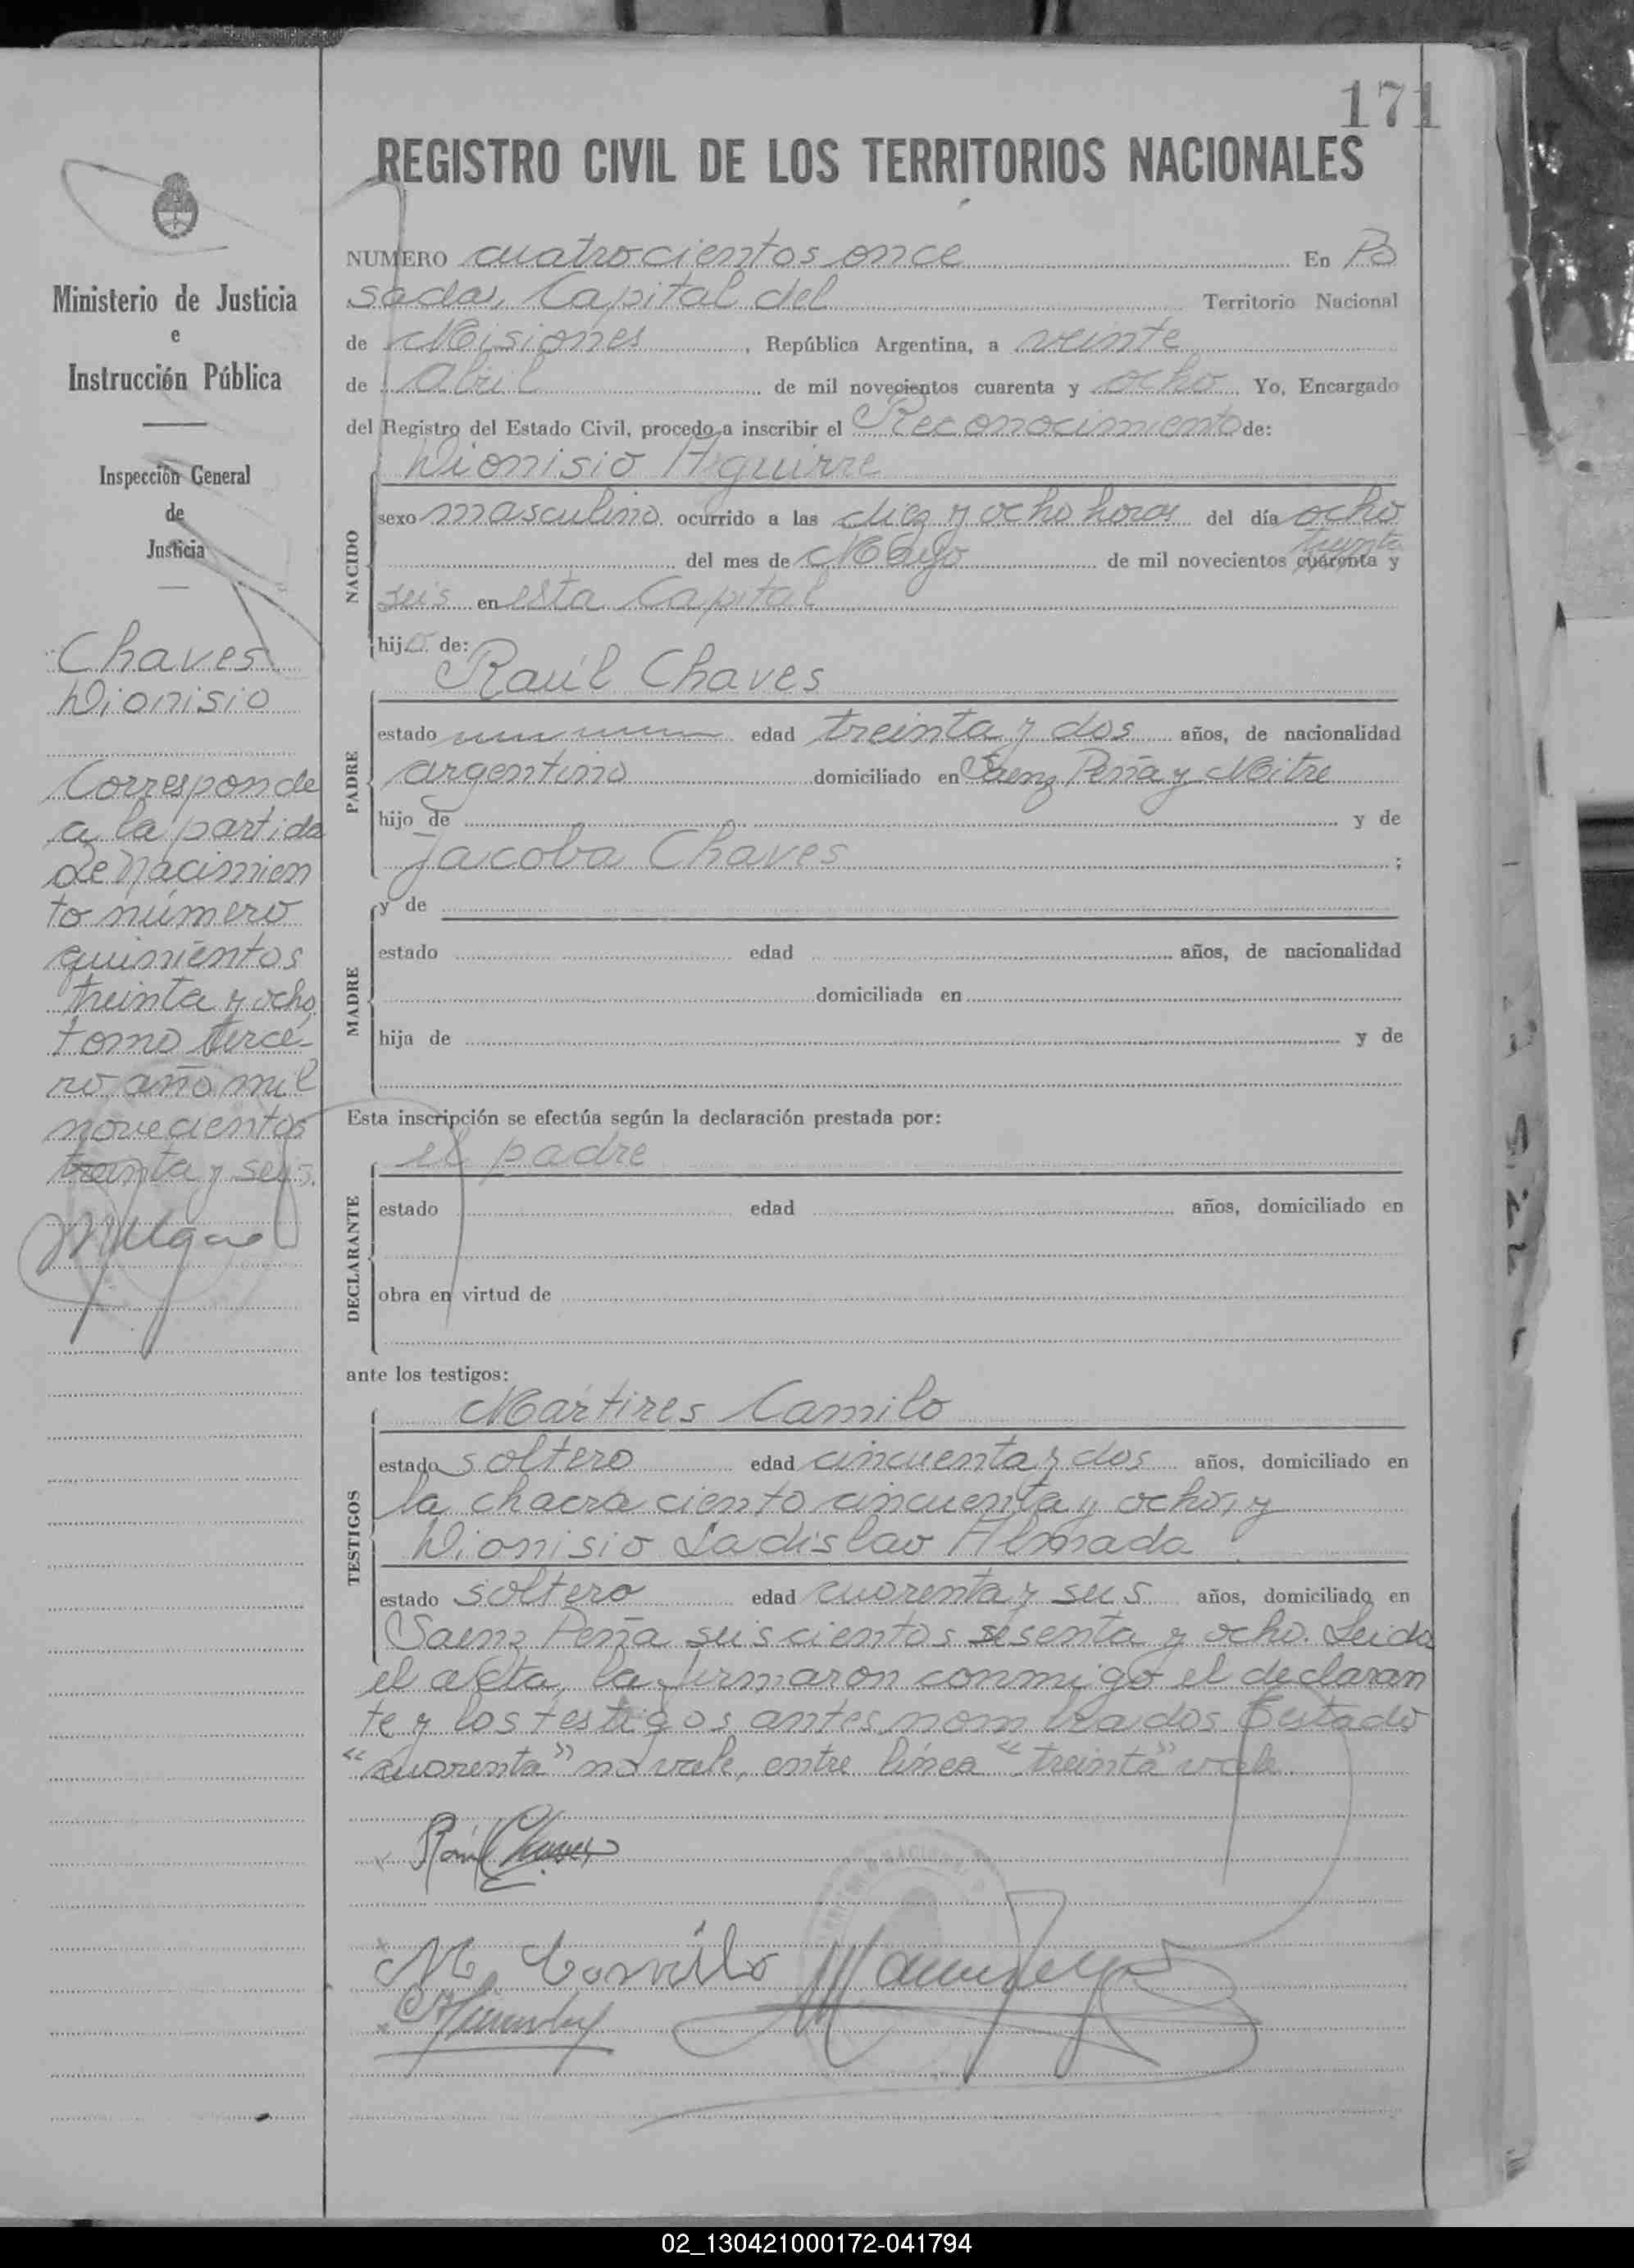 171
REGISTRO CIVIL DE LOS TERRITORIOS NACIONALES
NUMERO cuatrocientos once En Po
sadas, Capital del Territorio Nacional
de Misiones, República Argentina, a veinte
de Abril de mil novecientos cuarenta y ocho. Yo, Encargado
del Registro del Estado Civil, procedo a inscribir el Reconocimiento de:
Dionisio Aguirre
NACIDO
sexo masculino ocurrido a las diez y ocho horas del día ocho
del mes de Mayo de mil novecientos cuarenta y
treinta
seis en esta Capital
hijo de:
Raúl Chaves
PADRE
estado edad treinta y dos años, de nacionalidad
argentino domiciliado en Saenz Peña y Mitre
hijo de y de
Jacoba Chaves ;
y de
MADRE
estado edad años, de nacionalidad
domiciliada en
hija de y de
Esta inscripción se efectúa según la declaración prestada por:
el padre
DECLARANTE
estado edad años, domiciliado en
obra en virtud de
ante los testigos:
Mártires Camilo
TESTIGOS
estado soltero edad cincuenta y dos años, domiciliado en
la chacra ciento cincuenta y ocho, y
Dionisio Ladislao Almada
estado soltero edad cuarenta y seis años, domiciliado en
Saenz Peña seiscientos sesenta y ocho. Leida
el acta, la firmaron conmigo el declaran
te y los testigos antes nombrados. Testado
"cuarenta" no vale, entre línea "treinta" vale.
Raúl Chaves
M. Camilo
Ministerio de Justicia
e
Instrucción Pública
Inspección General
de
Justicia
Chaves
Dionisio
Corresponde
a la partida
de nacimien
to número
quinientos
treinta y ocho,
tomo terce-
ro año mil
novecientos
treinta y seis.
02_130421000172-041794